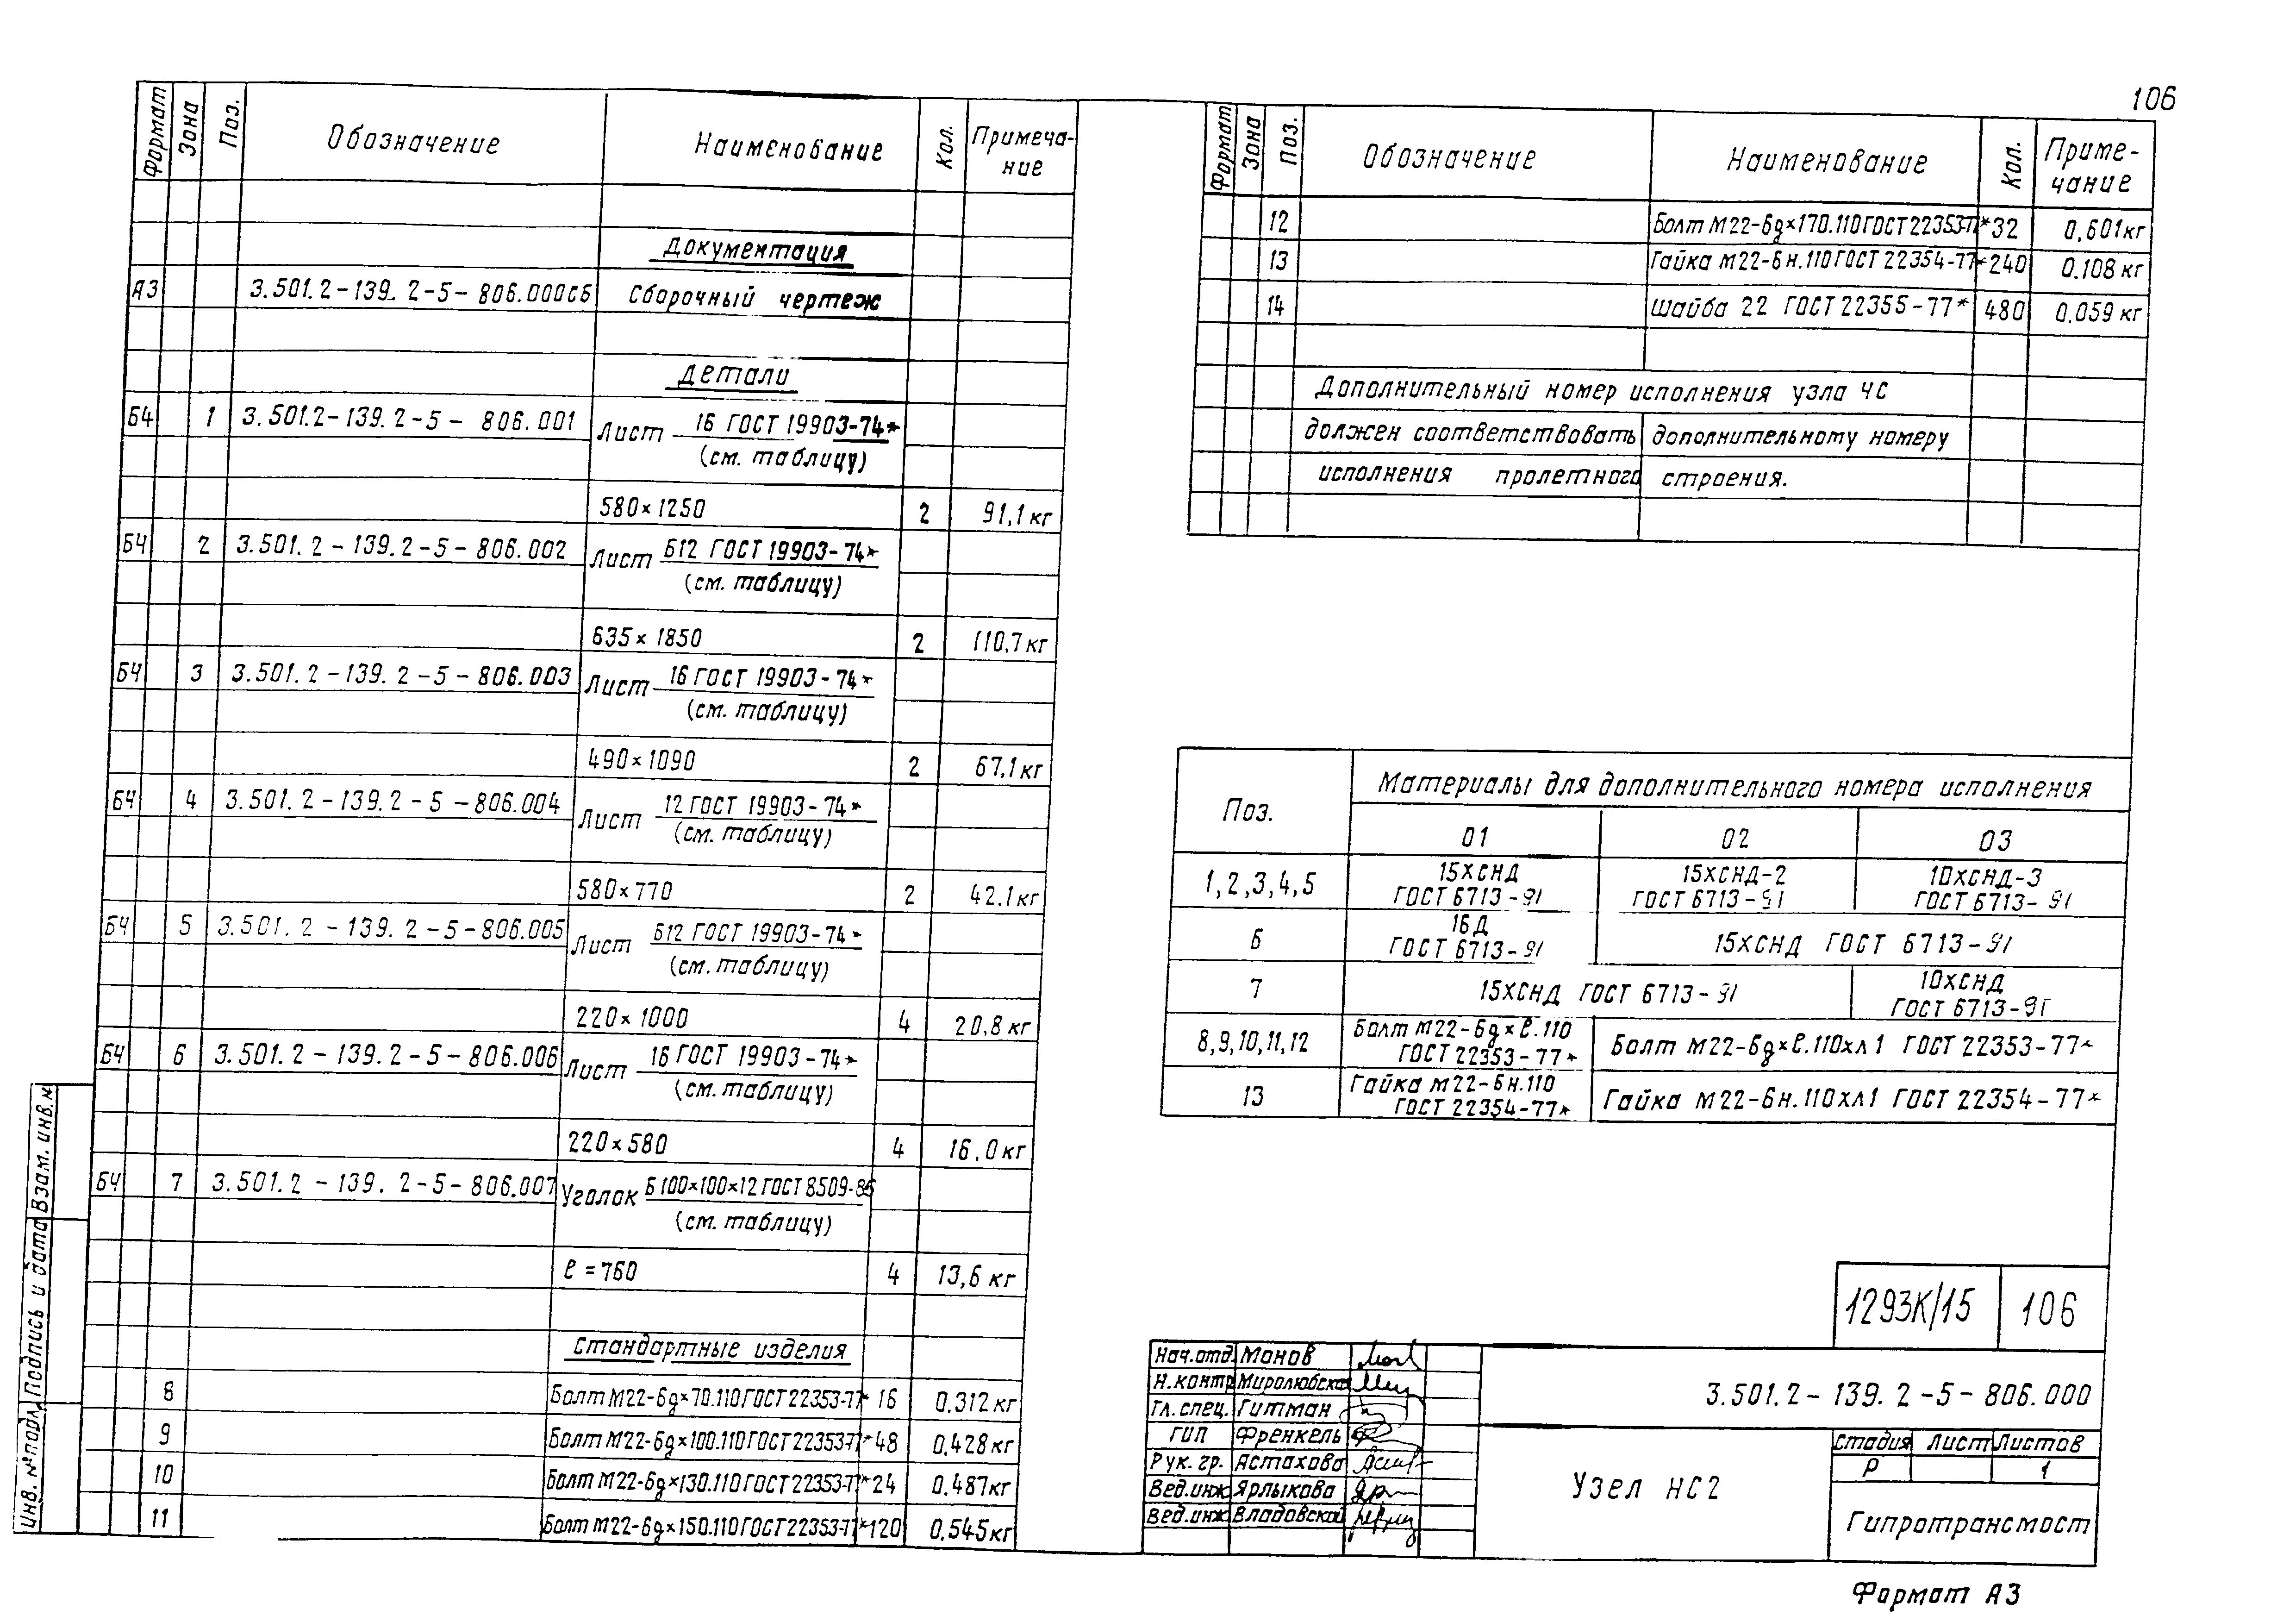 106
Формат Зона Поз. Обозначение Наименование Кол. Примеча-
ние
Документация
А3 3.501.2-139.2-5-806.000СБ Сборочный чертеж
Детали
БЧ 1 3.501.2-139.2-5-806.001 Лист 16 ГОСТ 19903-74*
(см. таблицу)
580×1250 2 91,1 кг
БЧ 2 3.501.2-139.2-5-806.002 Лист Б12 ГОСТ 19903-74*
(см. таблицу)
635×1850 2 110,7 кг
БЧ 3 3.501.2-139.2-5-806.003 Лист 16 ГОСТ 19903-74*
(см. таблицу)
490×1090 2 67,1 кг
БЧ 4 3.501.2-139.2-5-806.004 Лист 12 ГОСТ 19903-74*
(см. таблицу)
580×770 2 42.1 кг
БЧ 5 3.501.2-139.2-5-806.005 Лист Б12 ГОСТ 19903-74*
(см. таблицу)
220×1000 4 20,8 кг
БЧ 6 3.501.2-139.2-5-806.006 Лист 16 ГОСТ 19903-74*
(см. таблицу)
220×580 4 16,0 кг
БЧ 7 3.501.2-139.2-5-806.007 Уголок Б100×100×12 ГОСТ 8509-86
(см. таблицу)
ℓ=760 4 13,6 кг
Стандартные изделия
8 Болт М22-6g×70.110 ГОСТ 22353-77* 16 0.312 кг
9 Болт М22-6g×100.110 ГОСТ 22353-77* 48 0,428 кг
10 Болт М22-6g×130.110 ГОСТ 22353-77* 24 0.487 кг
11 Болт М22-6g×150.110 ГОСТ 22353-77* 120 0,545 кг
Формат Зона Поз. Обозначение Наименование Кол. Приме-
чание
12 Болт М22-6g×170.110 ГОСТ 22353-77* 32 0,601 кг
13 Гайка М22-6Н.110 ГОСТ 22354-77* 240 0.108 кг
14 Шайба 22 ГОСТ 22355-77* 480 0.059 кг
Дополнительный номер исполнения узла ЧС
должен соответствовать дополнительному номеру
исполнения пролетного строения.
Поз. Материалы для дополнительного номера исполнения
01 02 03
1,2,3,4,5 15ХСНД
ГОСТ 6713-91 15ХСНД-2
ГОСТ 6713-91 10ХСНД-3
ГОСТ 6713-91
6 16Д
ГОСТ 6713-91 15ХСНД ГОСТ 6713-91
7 15ХСНД ГОСТ 6713-91 10ХСНД
ГОСТ 6713-91
8,9,10,11,12 Болт М22-6g×ℓ.110
ГОСТ 22353-77* Болт М22-6g×ℓ.110ХЛ1 ГОСТ 22353-77*
13 Гайка М22-6Н.110
ГОСТ 22354-77* Гайка М22-6Н.110ХЛ1 ГОСТ 22354-77*
1293К/15 106
Нач.отд. Монов
Н.контр Миролюбская
Гл. спец. Гитман
ГИП Френкель
Рук. гр. Астахова
Вед.инж Ярлыкова
Вед.инж Владовской
3.501.2-139.2-5-806.000
Узел НС2
Стадия Лист Листов
Р 1
Гипротрансмост
Формат А3
Инв. № подл. Подпись и дата Взам. инв. №